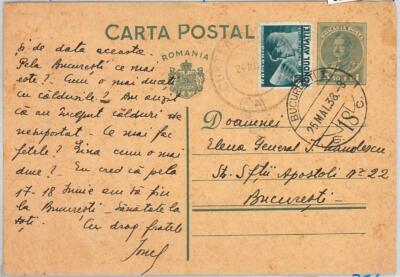 CARTA POSTALA
ROMANIA
și de data aceasta.
Pela București ce mai
este? Cum o mai duceți
cu căldurile? Am auzit
că au început călduri de
nesuportat. Ce mai fac
fetele? Lina cum o mai
duce? Eu cred că pela
17-18 Iunie am să fiu
la București. Sănătate la
toți.
Cu drag fratele
Ionel
FONDUL AVIAȚIEI
BUCUREȘTI
26 MAI. 38
Doamnei
Elena General
St. Sfții Apostoli No 22
București